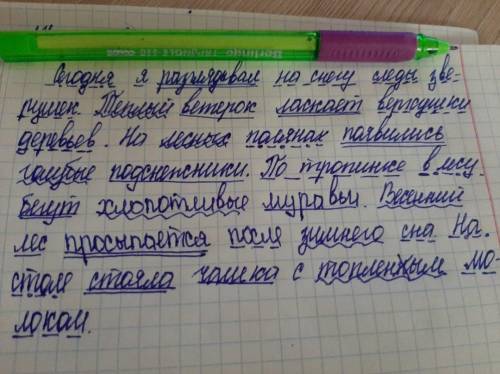 Berlingo TRIANGLE 110 COLOR
Сегодня я разглядывал на снегу следы зве-
рушек. Теплый ветерок ласкает верхушки
деревьев. На лесных полянах появились
голубые подснежники. По тропинке в лесу
бегут хлопотливые муравьи. Весенний
лес просыпается после зимнего сна. На
столе стояла чашка с топленным мо-
локом.